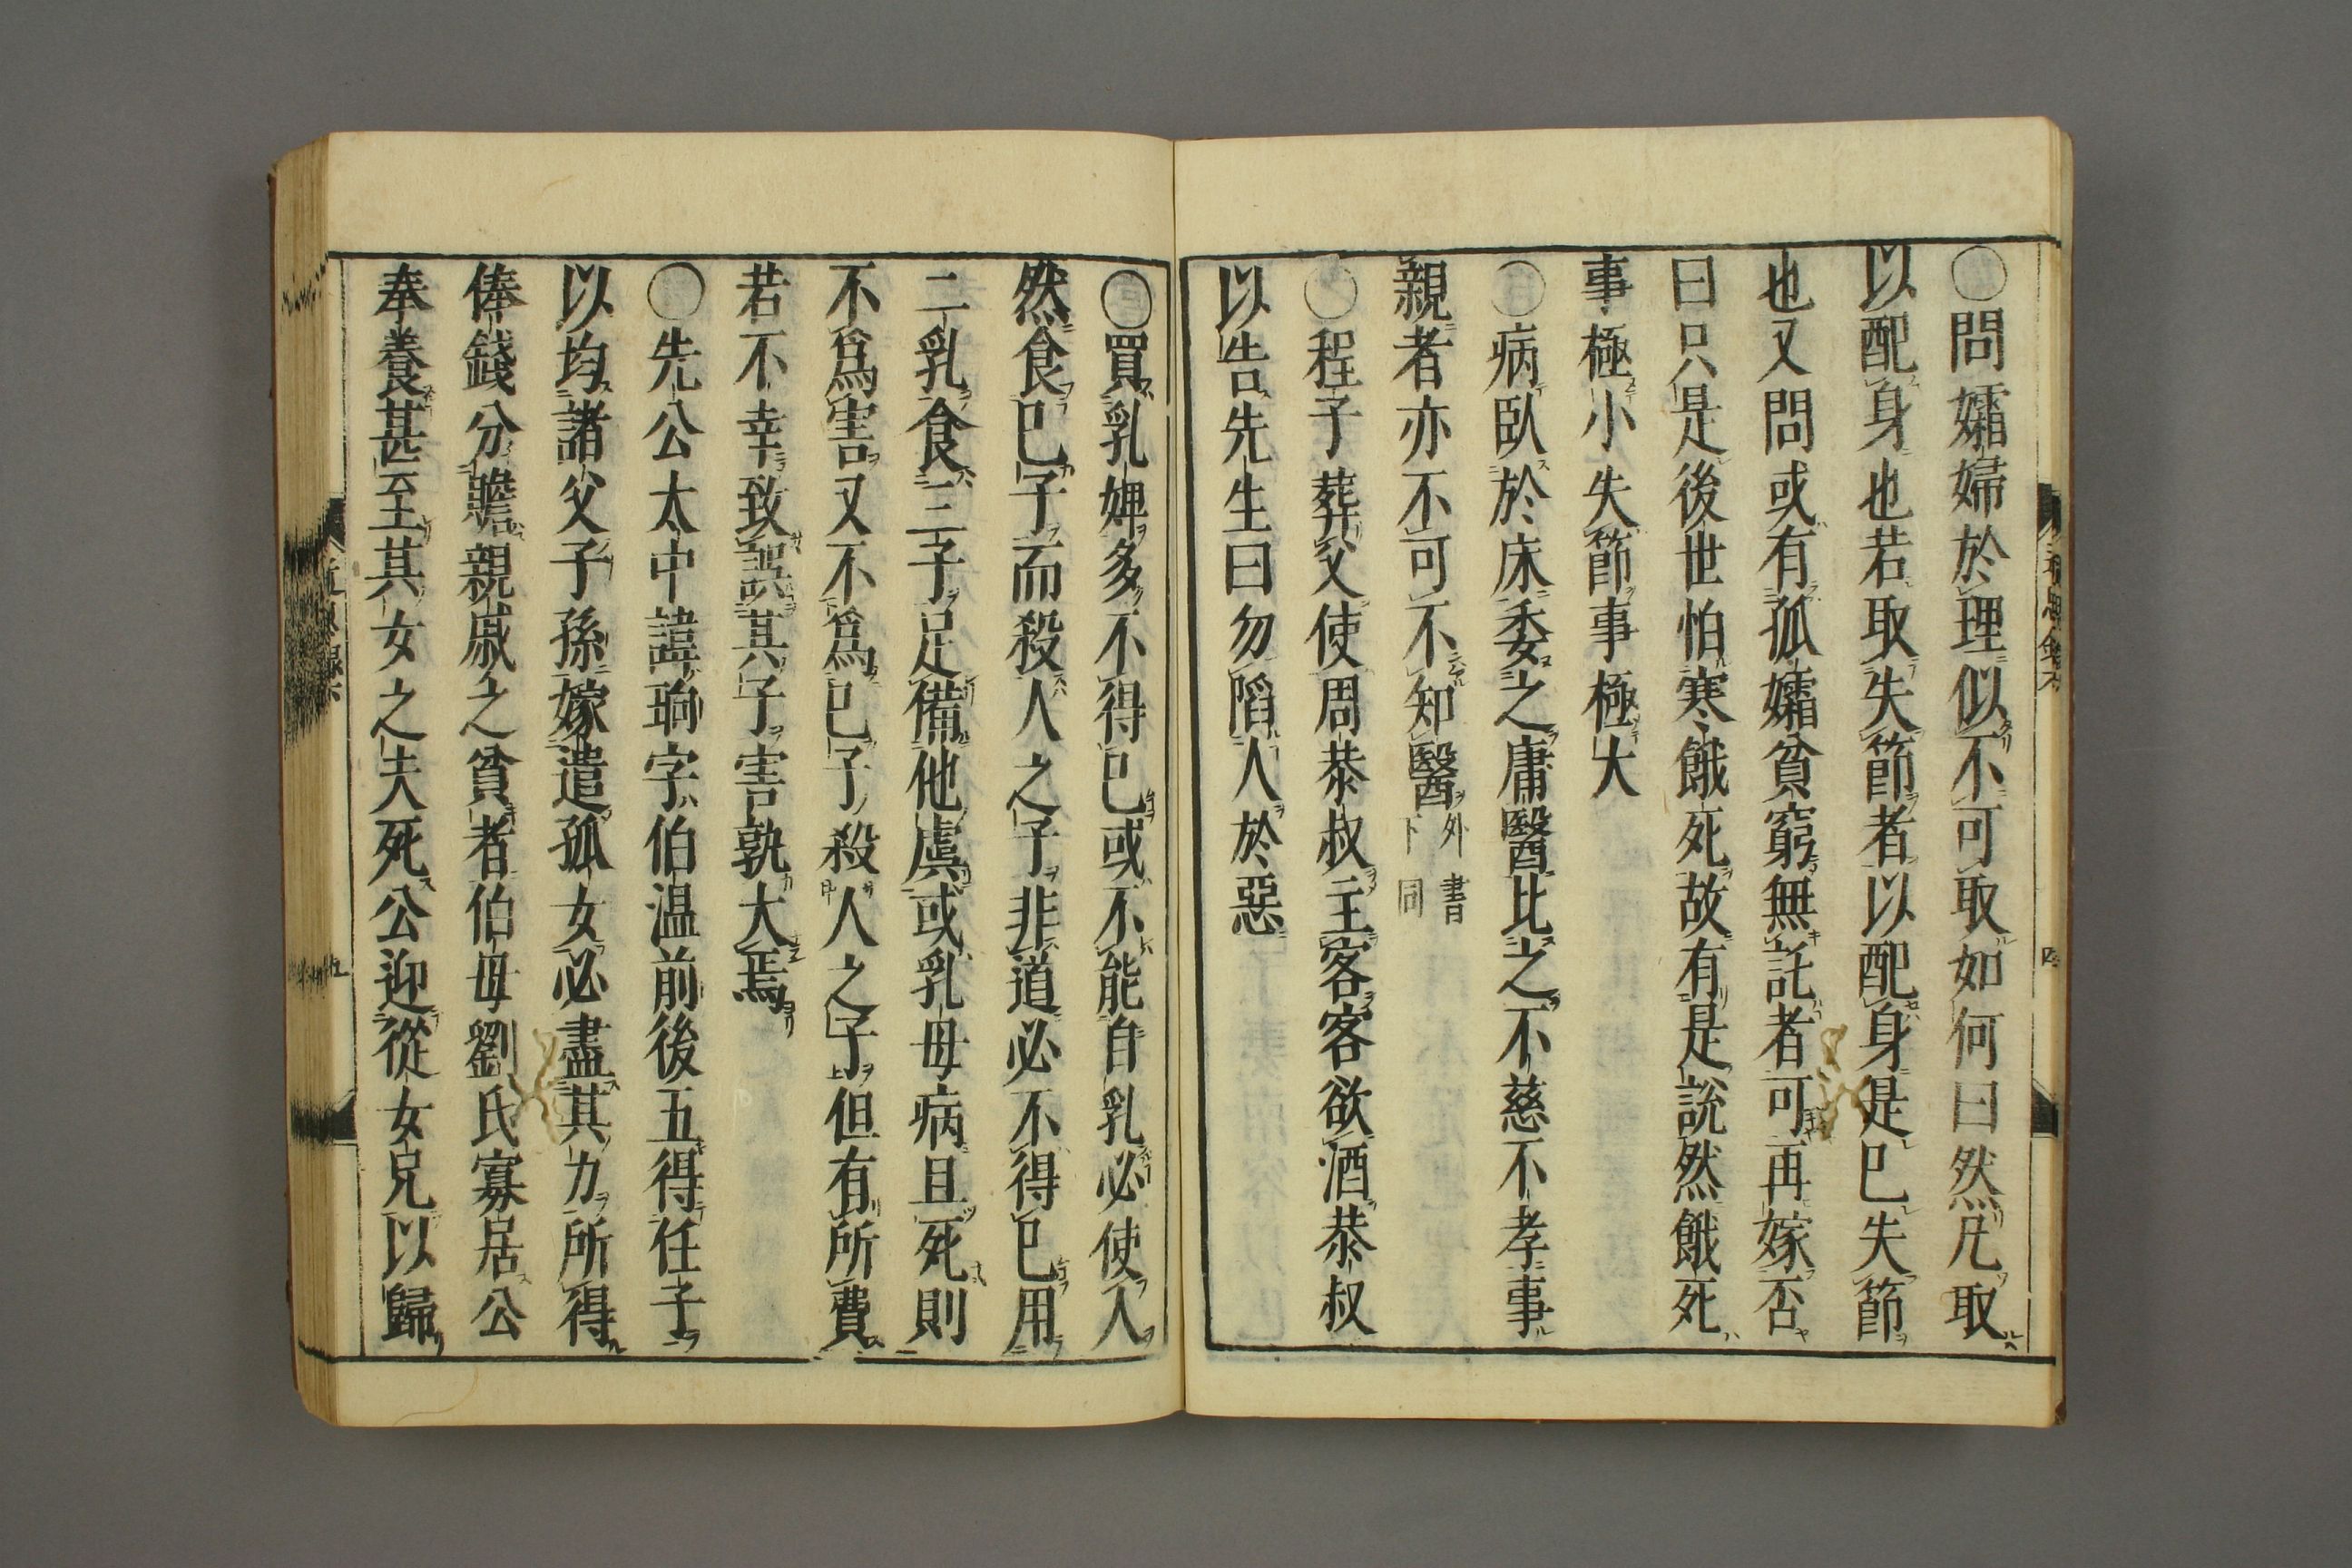 〇問孀婦於理似不可取如何曰然凡取
以配身也若取失節者以配身是已失節
也又問或有孤孀貧窮無託者可再嫁否
曰只是後世怕寒餓死故有是説然餓死
事極小失節事極大
〇病臥於床委之庸醫比之不慈不孝事
親者亦不可不知醫外書
下同
〇程子葬父使周恭叔主客客欲酒恭叔
以告先生曰勿陷人於惡
〇買乳婢多不得已或不能自乳必使人
然食己子而殺人之子非道必不得已用
二乳食三子足備他虞或乳母病且死則
不爲害又不爲己子殺人之子但有所費
若不幸致誤其子害孰大焉
〇先公太中諱珦字伯温前後五得任子
以均諸父子孫嫁遣孤女必盡其力所得
俸錢分贍親戚之貧者伯母劉氏寡居公
奉養甚至其女之夫死公迎從女兄以歸